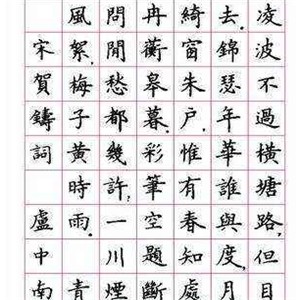 凌波不過橫塘路，但目
去。錦瑟年華誰與度，月
綺窗朱戶，惟有春知處
冉蘅皋暮，彩筆空題斷
問閒愁都幾許，一川煙
風絮，梅子黃時雨。青
宋賀鑄詞 盧中南